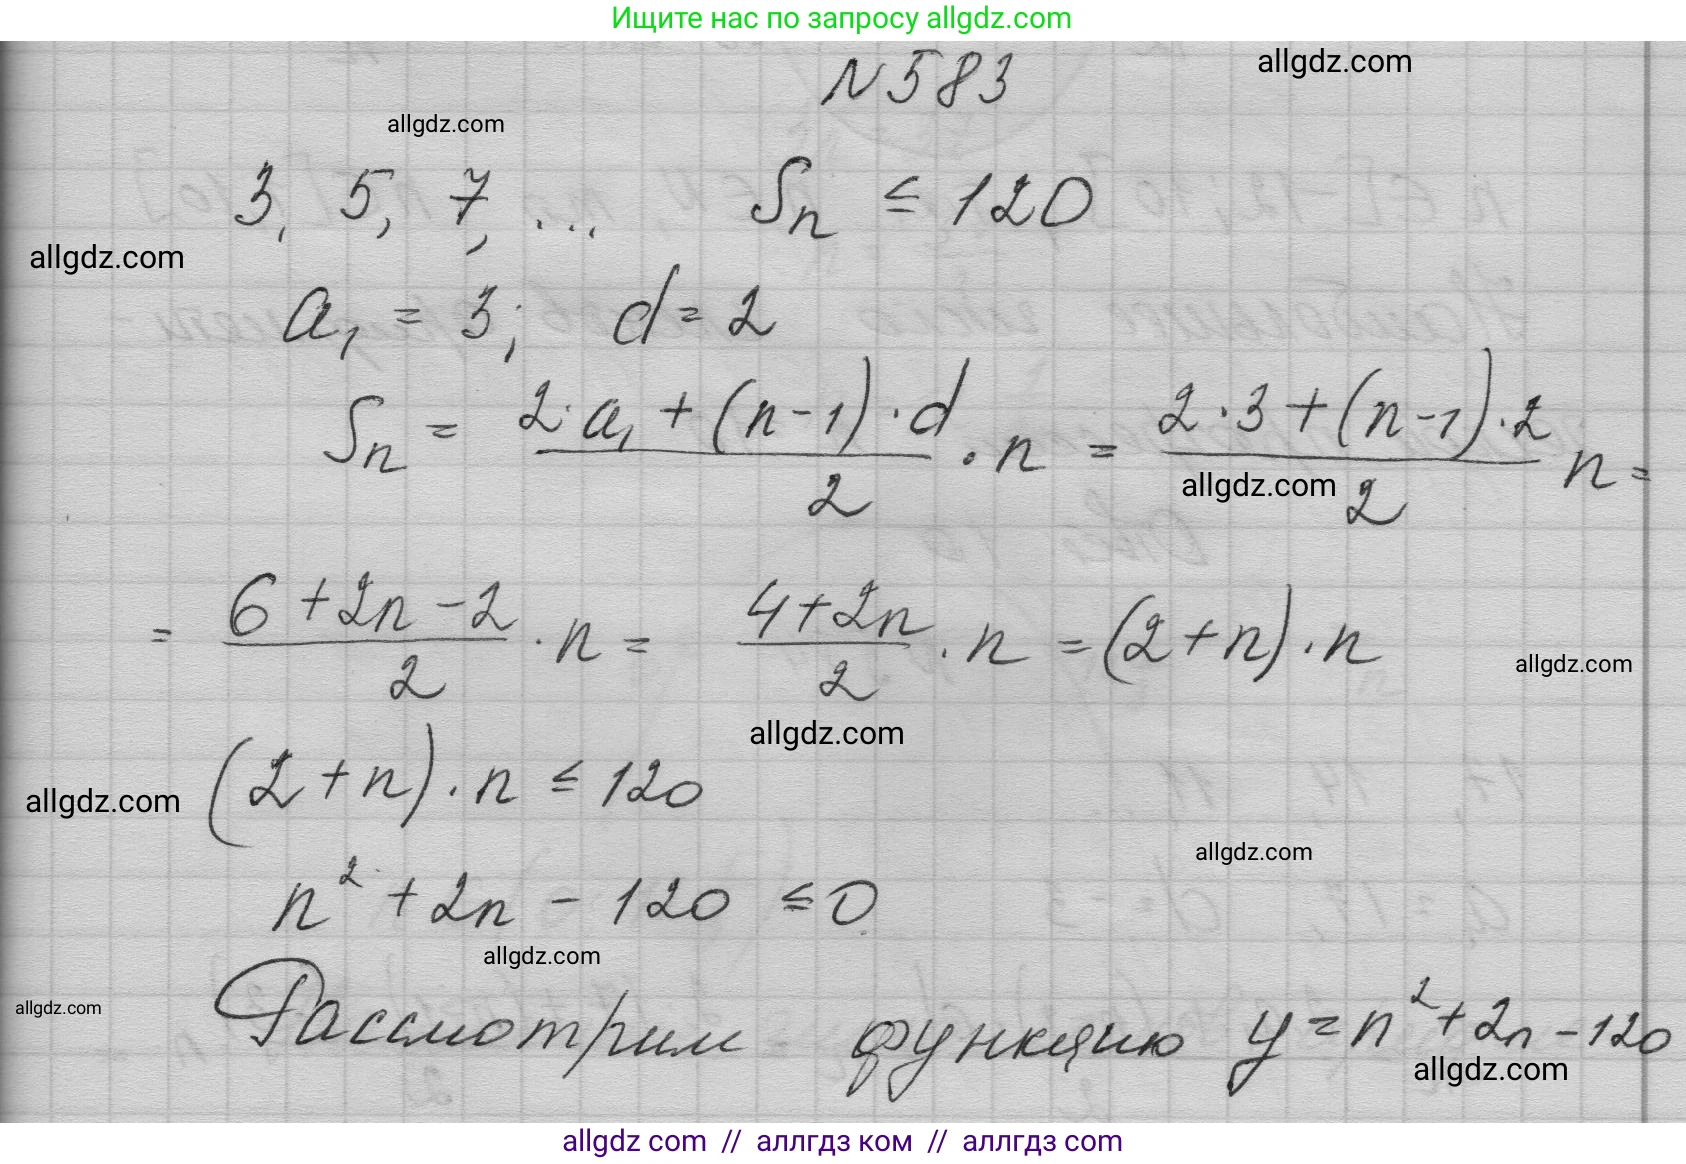 Ищите нас по запросу allgdz.com
N583
allgdz.com
allgdz.com
3, 5, 7, ... Sn ≤ 120
allgdz.com
a₁ = 3; d = 2
Sn = (2·a₁ + (n-1)·d)/2 · n = (2·3 + (n-1)·2)/2 n =
allgdz.com
= (6+2n-2)/2 · n = (4+2n)/2 · n = (2+n)·n
allgdz.com
allgdz.com
(2+n)·n ≤ 120
allgdz.com
allgdz.com
n² + 2n - 120 ≤ 0
allgdz.com
allgdz.com
Рассмотрим функцию y = n² + 2n - 120
allgdz.com
allgdz com // аллгдз ком // аллгдз com